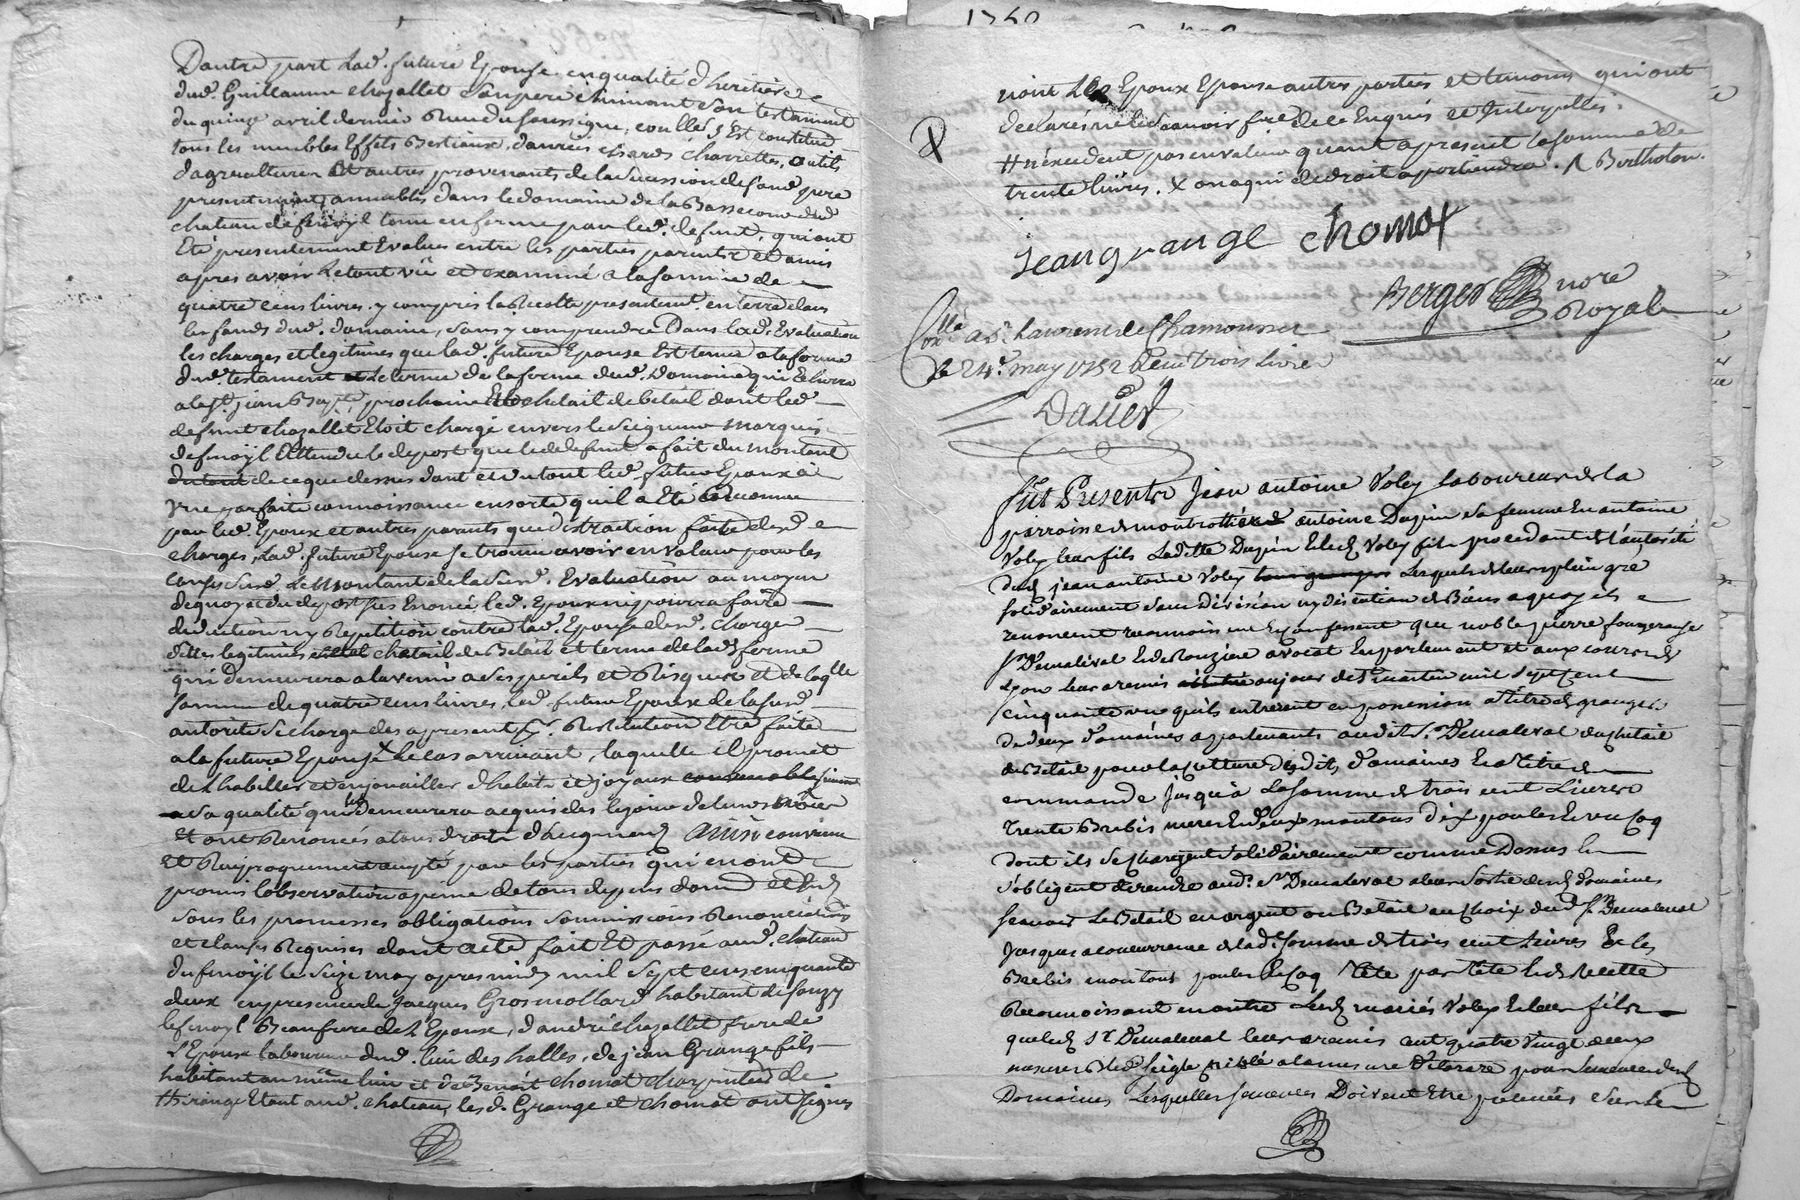 D'autre part lad. future Epouse en qualité d'héritière
dud. Guillaume chazallet son père suivant son testament
du quinze avril dernier Receu du soussigné, con lle s'Est constitué
tous les meubles Effets Bestiaux, danrées chards charrettes, outils
d'agriculture Et autres provenants de la succession de sond. père
presentement, ameublés dans le domaine de la Bassecour dud.
chateau de fenoÿl tenu en ferme par led. defunt, qui ont
Eté presentement Evalués entre les parties parents et amis
apres avoir le tout vû et examiné a la somme de
quatre cens livres, y compris la Recolte presentemt. en terre dans
les fonds dud. domaine, sans y comprendre Dans lad. Evaluation
les charges et legitimes que lad. future Epouse Est tenue a la forme
dud. testament et le terme de la ferme dud. Domaine qui Echerra
a la st. jean Bapte. prochaine Et le chetail de betail dont led.
defunt chazallet Etoit chargé envers le seigneur marquis
de fenoÿl Attendu le depost que led. defunt a fait du montant
du tout de ce que dessus dont et du tout led. futur Epoux a
une parfaite connoissance ensorte qu'il a Eté reconnu
par led. Epoux et autres parents que distraction faite desd.
charges, lad. future Epouse se trouve avoir en valeur pour les
le Montant de lasusd. Evaluation au moyen
dequoy et du depost sus Enoncé, led. Epoux ni pourra faire
deduction ny Repetition contre lad. Epouse desd. charges
dittes legitimes chetail de Betail et terme de lad. ferme
qui demeurera a l'avenir a ses perils et Risques et de laqlle
somme de quatre cens livres, led. futur Epoux de lasusd.
autorité se charge des a present pr. Restitution Etre faite
a la future Epouse le cas arrivant, laquelle il promet
de l'habiller et enjoailler d'habits et joyaux convenables suivant
sa qualité qui luy demeurera acquis des le jour de leurs nôces
Et ont Renoncés a tous droits d'augment Ainsi convenu
et Reciproquement accepté par les parties qui en ont
promis l'observation a peine de tous depens domd. et Int.
sous les promesses obligations soumissions Renonciations
et clauses Requises dont acte fait Et passé aud. chateau
du fenoÿl le seize may apres midy mil sept cens cinquante
deux en presence de Jacques Grosmollard habitant de souzy
Beaufrere de l'Epouse, d'andré chazallet frere de
l'Epouse laboureur dud. lieu des halles, de jean Grange fils
habitant au même lieu et de Benoit chomat charpentier de
Etant aud. chateau, lesd. Grange et chomat ont signés
non Les Epoux Epouse autres parties et temoins qui ont
declarés ne le scavoir faire de ce Enquis et Interpellés.
# n'excedent pas en valeur quant a present la somme de
trente livres. X on a qui de droit apartiendra. Bertholon.
jean grange chomat
Berger nore
Royal
Collé a st. Laurent de Chamousset
le 24e. may 1752 Receu trois livres
Dalier
fut Presents Jean antoine Voley laboureur de la
parroise de montrottier antoine Dupin sa femme En antoine
Voley leur fils Laditte Dupin Led. Voley fils procedant de l'autorité
dud. jean antoine Voley Lesquels de leur plein gré
solidairement sans Division ny discution de Biens a quoy ils
renoncent reconnoissent Et confessent que noble pierre fougerouse
sr. Demaleval Avocat En parlement et aux cours de
Lyon leur a remis au jour de st. martin mil sept cent
cinquante un qu'ils entrerent en possession a titre de grangers
de deux domaines apartenants audit sr. Demaleval du chetail
de Betail pour la culture desdits domaines En a titre de
commande jusqu'à La somme de trois cent Livres
trente Brebis meres Et deux moutons dix poules Et un coq
dont ils se chargent solidairement comme Dessus Et
s'obligent de rendre aud. sr. Demaleval a leur sortie desd. domaines
scavoir Le Betail en argent ou Betail au choix dud. sr. Demaleval
jusques a concurrence de lad. somme de trois cent Livres Et les
Brebis moutons poules Et coq tête par tête
Reconnoissant en outre Lesd. mariés Voley Et leur fils
que led. sr. Demaleval leur a remis cent quatre vingt deux
mesures Bled seigle Criblé a la mesure de larare pour semence desd.
Domaines Lesquelles semences Doivent Etre prelevés sur le